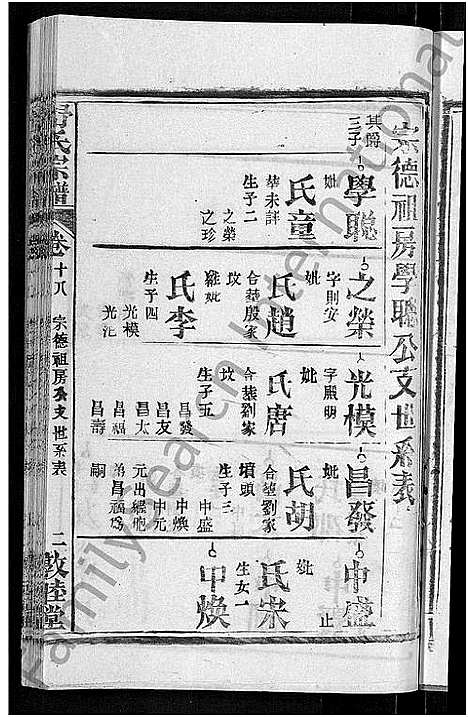 宗德祖房學聰公支世系表
其爵
三子
學聰
妣
氏童
葬未詳
生子二
之榮
之珍
之榮
字則安
妣
氏趙
合葬殷家
坟
繼妣
氏李
生子四
光模
光汜
光模
字熙明
妣
氏唐
合葬劉家
坟
生子五
昌發
昌友
昌太
昌福
昌壽
昌發
妣
氏胡
合葬劉家
墳頭
生子三
中盛
中煥
中元
元出繼胞
弟昌福爲
嗣
中盛
止
妣
氏宋
生女一
中煥
氏宗譜
卷十八
宗德祖房公支世系表
二
敦睦堂
FamilySearch International